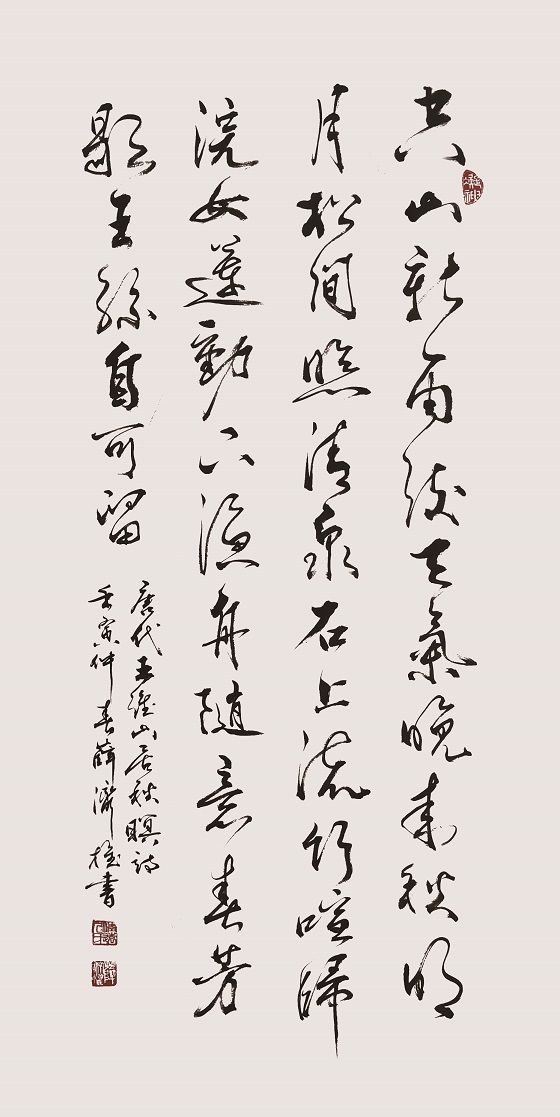 空山新雨後天氣晚来秋明
月松間照清泉石上流竹喧歸
浣女蓮動下漁舟随意春芳
歇王孫自可留
唐代王維山居秋暝詩
壬寅仲春薛濟楼書